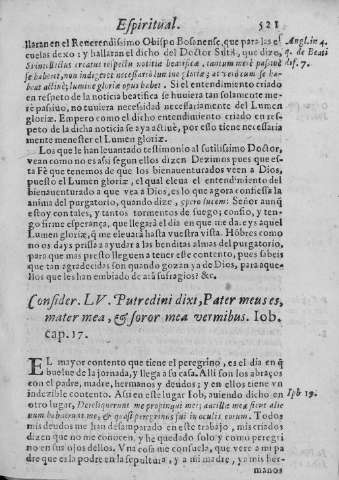 Espiritual. 521
llaran en el Reverendissimo Obispo Bosanense, que para las es Angl. in 4.
cuelas dexo: y hallaran el dicho del Doctor Sutil, que dize, q. de Beati
Si intellectus creatus respectu notitiæ beatificæ, tantum mere passiuè dis. 7.
se haberet, non indigeret necessariò lumine gloriæ; at verò cum se ha-
beat actiuè; lumine gloriæ opus habet. Si el entendimiento criado
en respeto de la noticia beatifica se huuiera tan solamente me-
rè passiuò, no tuuiera necesidad necessariamente del Lumen
gloriæ. Empero como el dicho entendimiento criado en res-
peto de la dicha noticia se aya actiuè, por esso tiene necessaria
mente menester el Lumen gloriæ.
Los que le han leuantado testimonio al sutilissimo Doctor,
vean como no es assi segun ellos dizen Dezimos pues que es-
ta Fè que tenemos de que los bienauenturados veen a Dios,
puesto el Lumen gloriæ, el qual eleua el entendimiento del
bienauenturado a que vea a Dios, es lo que agora confiessa la
anima del purgatorio, quando dize, spero lucem: Señor aunq̃
estoy con tales, y tantos tormentos de fuego; confio, y ten-
go firme esperança, que llegarà el dia en que me da-eys aquel
Lumen gloriæ, q̃ me eleuarà hasta vuestra vista. Hõbres como
no os days prissa a ayudar a las benditas almas del purgatorio,
para que mas presto lleguen a tener este contento, pues sabeis
que tan agradecidas son quando gozan ya de Dios, para aque-
llos que les han embiado de acà sufragios? &c.
Consider. LV. Putredini dixi, Pater meus es,
mater mea, & soror mea vermibus. Iob.
cap. 17.
EL mayor contento que tiene el peregrino, es el dia en q̃
buelue de la jornada, y llega a su casa. Alli son los abraços
con el padre, madre, hermanos y deudos; y en ellos tiene vn
indezible contento. Assi en este lugar Iob, auiendo dicho en Iob 19.
otro lugar, Dereliquerunt me propinqui mei; ancillæ meæ sicut alie
num habuerunt me, & quasi peregrinus fui in oculis eorum. Todos
mis deudos me han desamparado en este trabajo, mis criados
dizen que no me conocen, y he quedado solo y como peregri
no en sus ojos dellos. Vna cosa me consuela, que vere a mi pa
dre que es la podre en la sepultura, y a mi madre, y a mis her-
manos